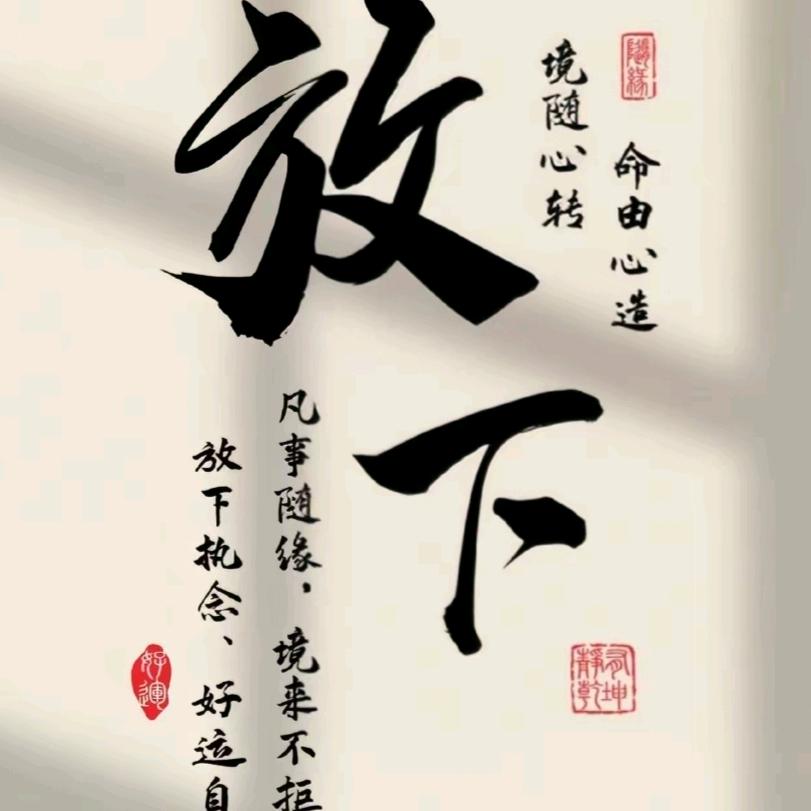 随緣
命由心造
境随心转
放下
凡事随缘，境来不拒
放下执念、好运自
好運